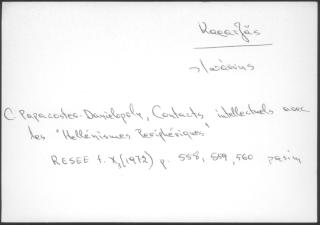 Καρατζάς
→ Ιωάννης
C. Papacostea-Danielopolu, Contacts intellectuels avec
les "Hellénismes Périphériques"
RESEE t. X, (1972) p. 558, 559, 560 pasim